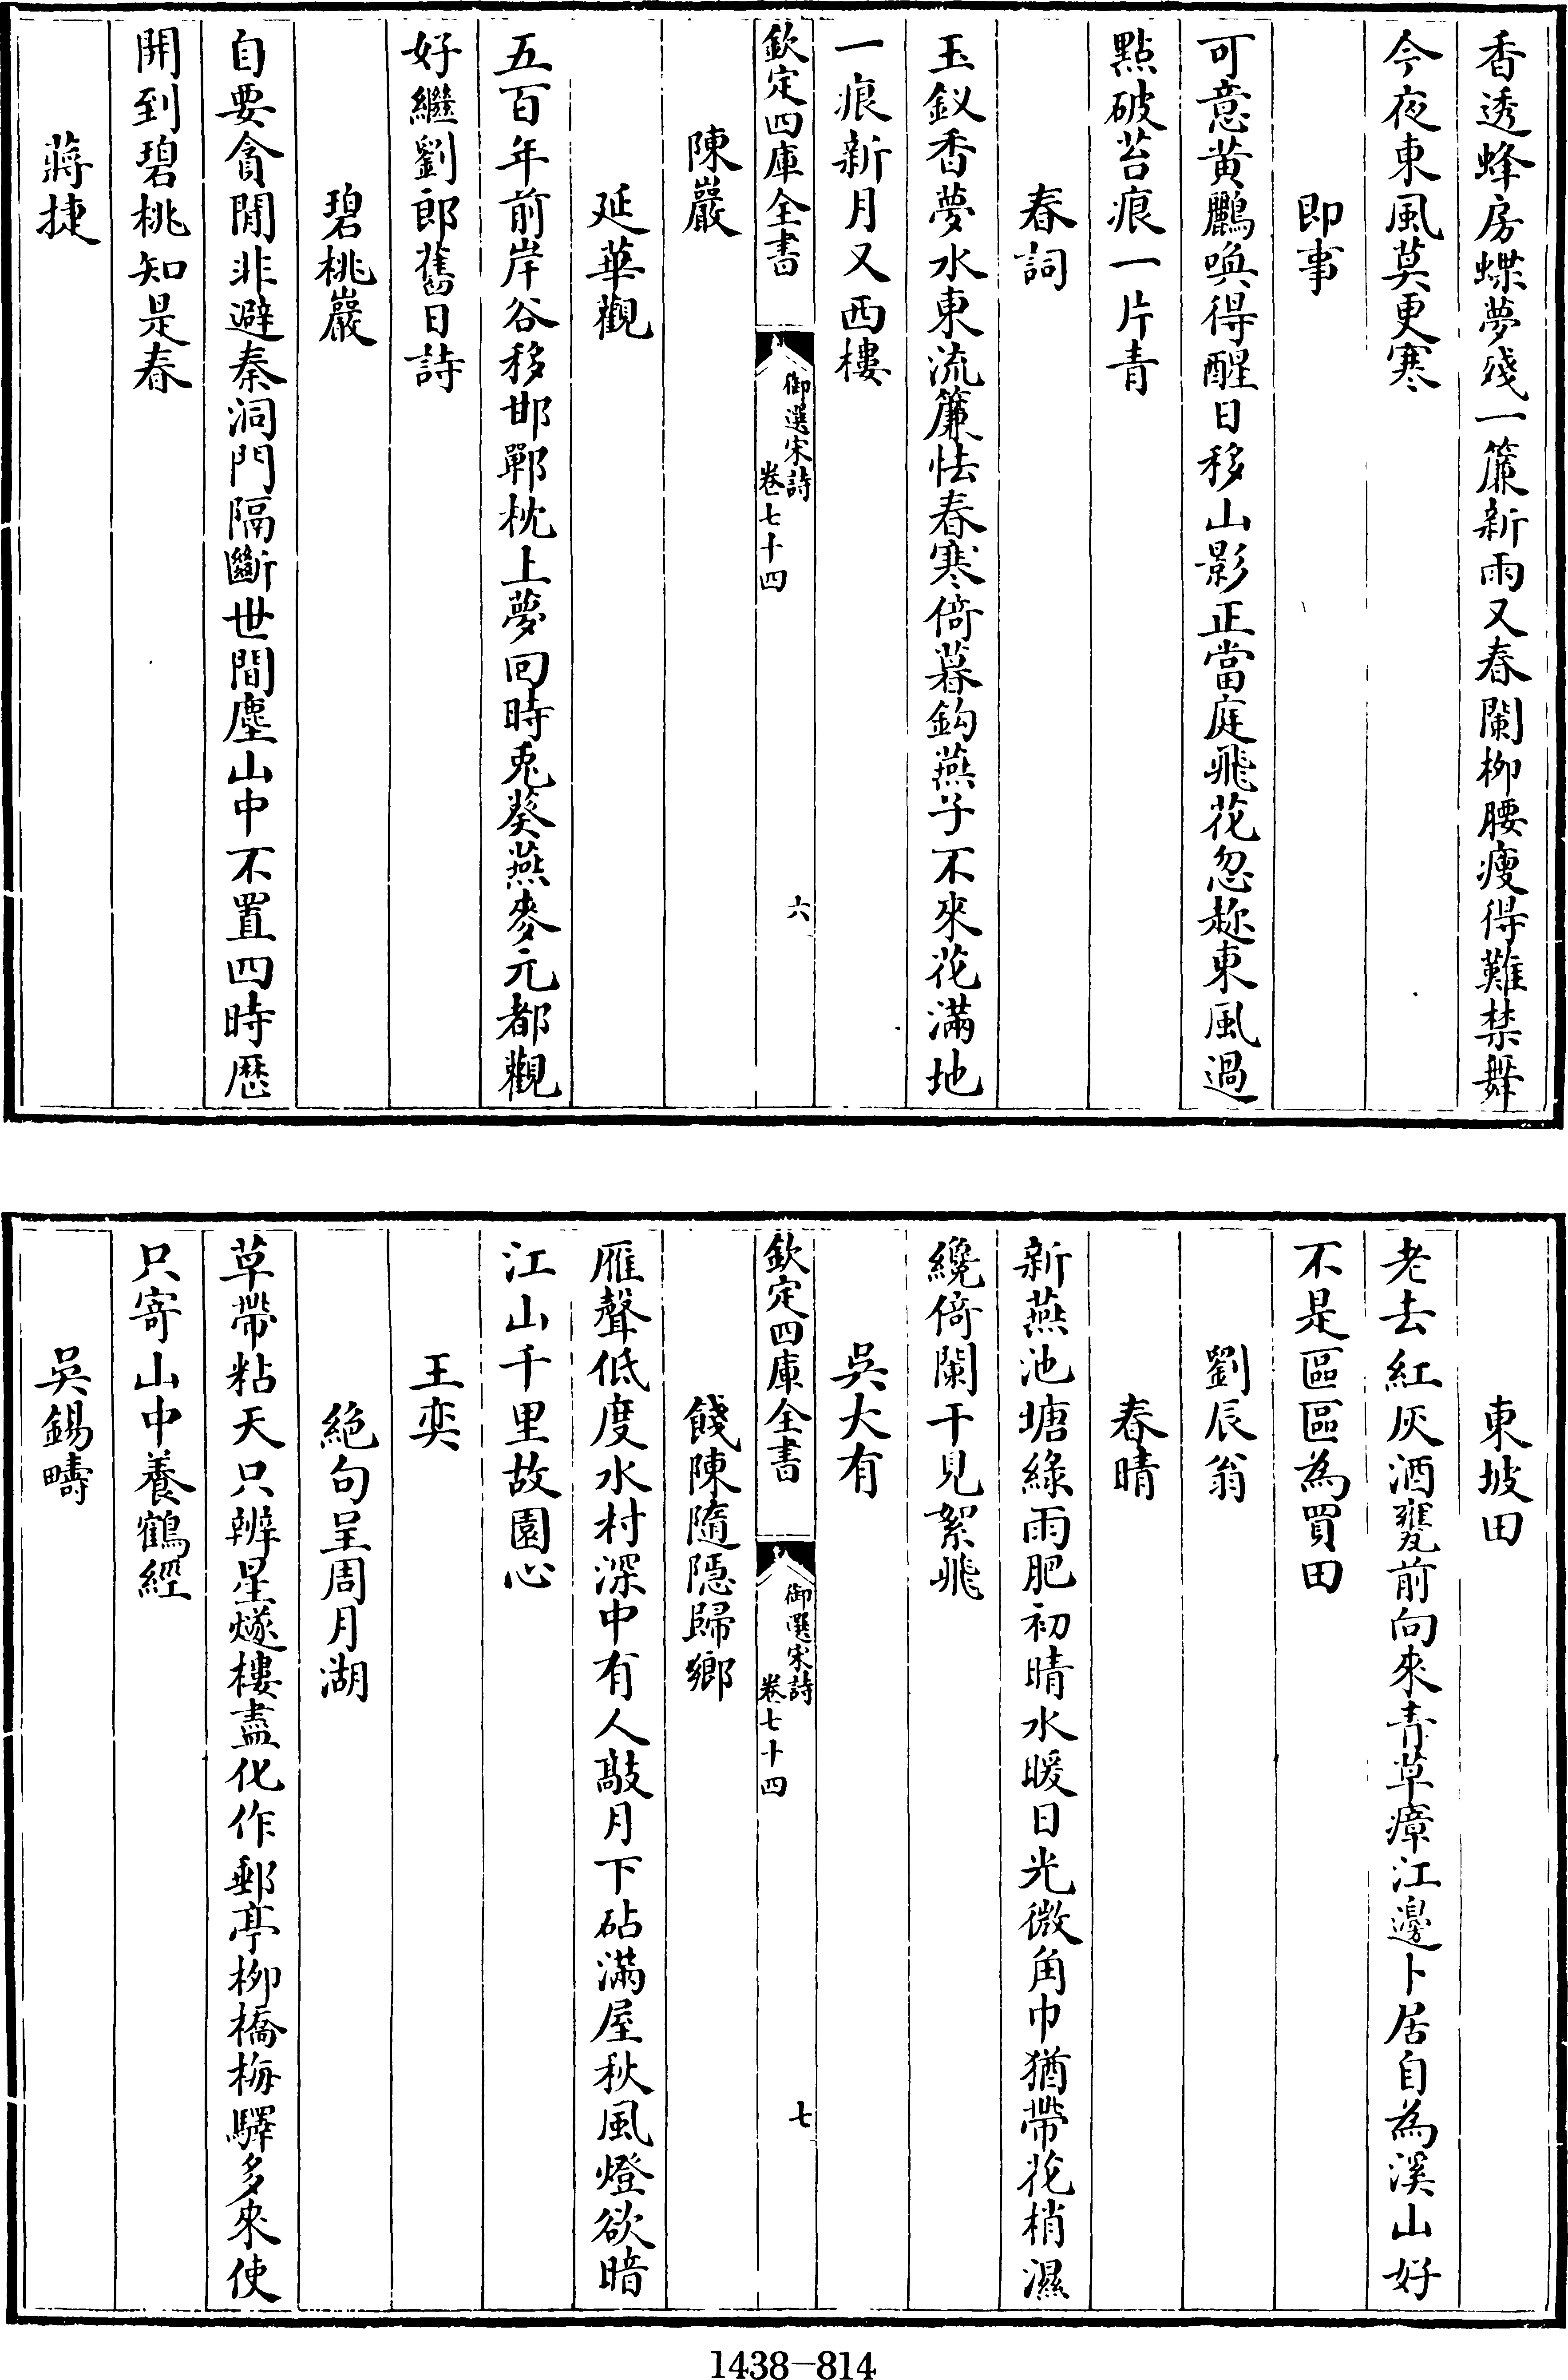 香透蜂房蝶夢殘一簾新雨又春闌柳腰瘦得難禁舞
今夜東風莫更寒
即事
可意黄鸝喚得醒日移山影正當庭飛花忽趂東風過
點破苔痕一片青
春詞
玉釵香夢水東流簾怯春寒倚暮鈎燕子不來花滿地
一痕新月又西樓
欽定四庫全書
御選宋詩
卷七十四
六
陳巖
延華觀
五百年前岸谷移邯鄲枕上夢回時兎葵燕麥元都觀
好繼劉郎舊日詩
碧桃巖
自要貪閒非避秦洞門隔斷世間塵山中不置四時厯
開到碧桃知是春
蔣捷
東坡田
老去紅灰酒甕前向來青草瘴江邊卜居自為溪山好
不是區區為買田
劉辰翁
春晴
新燕池塘綠雨肥初晴水暖日光微角巾猶帶花梢濕
纔倚闌干見絮飛
吳大有
欽定四庫全書
御選宋詩
卷七十四
七
餞陳隨隱歸鄉
雁聲低度水村深中有人敲月下砧滿屋秋風燈欲暗
江山千里故園心
王奕
絕句呈周月湖
草帶粘天只辨星燧樓盡化作郵亭柳橋梅驛多來使
只寄山中養鶴經
吳錫疇
1438—814